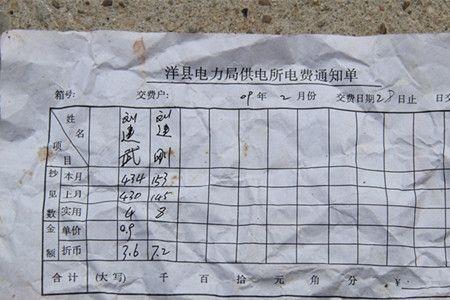 洋县电力局供电所电费通知单
箱号: 交费户: 09年 2月份 交费日期28日止 日交
姓名 刘建武 刘建刚
项目
抄见数 本月 434 153
上月 430 145
实用 4 8
金额 单价 0.9
折币 3.6 7.2
合计 (大写) 千 百 拾 元 角 分 ¥: